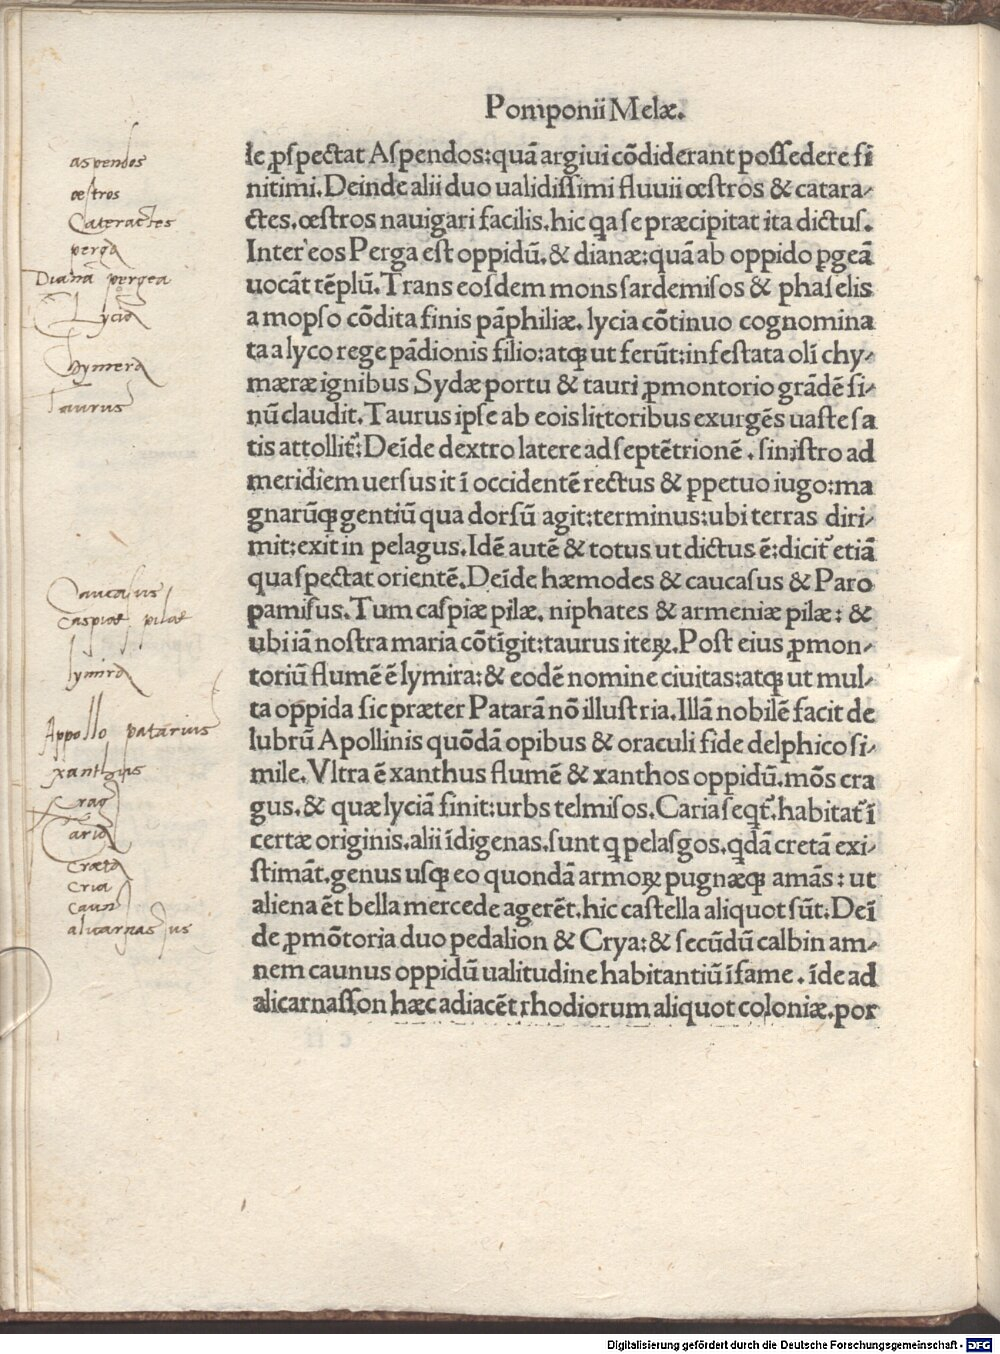 Pomponii Melæ.
le ꝓspectat Aspendos: quā argiui cōdiderant possedere fi
nitimi. Deinde alii duo ualidissimi fluuii œstros & catara-
ctes. œstros nauigari facilis. hic qa se præcipitat ita dictus.
Inter eos Perga est oppidū. & dianæ: quā ab oppido ꝑgeā
uocāt tēplū. Trans eosdem mons sardemisos & phaselis
a mopso cōdita finis pāphiliæ. lycia cōtinuo cognomina
ta a lyco rege pādionis filio: atqꝫ ut ferūt: infestata olī chy-
mæræ ignibus Sydæ portu & tauri ꝓmontorio grādē si-
nū claudit. Taurus ipse ab eois littoribus exurgēs uaste sa
tis attollit᷑: Deīde dextro latere ad septētrionē. sinistro ad
meridiem uersus it ī occidentē rectus & ꝑpetuo iugo: ma
gnarūqꝫ gentiū qua dorsū agit: terminus: ubi terras diri-
mit: exit in pelagus. Idē autē & totus ut dictus ē: dicit᷑ etiā
qua spectat orientē. Deīde hæmodes & caucasus & Paro
pamisus. Tum caspiæ pilæ. niphates & armeniæ pilæ: &
ubi iā nostra maria cōtīgit: taurus iteꝝ. Post eius ꝓmon-
toriū flumē ē lymira: & eodē nomine ciuitas: atqꝫ ut mul-
ta oppida sic præter Patarā nō illustria. Illā nobilē facit de
lubrū Apollinis quōdā opibus & oraculi fide delphico si-
mile. Vltra ē xanthus flumē & xanthos oppidū. mōs cra
gus. & quæ lyciā finit: urbs telmisos. Caria seqt᷑. habitat᷑ ī
certæ originis. alii īdigenas. sunt q pelasgos. qdā cretā exi-
stimāt. genus usqꝫ eo quondā armoꝝ pugnæqꝫ amās: ut
aliena ēt bella mercede agerēt. hic castella aliquot sūt: Deī
de ꝓmōtoria duo pedalion & Crya: & secūdū calbin am-
nem caunus oppidū ualitudine habitantiū īfame. īde ad
alicarnasson hæc adiacēt rhodiorum aliquot coloniæ. por
aspendos
œstros
Cateractes
perga
Diana pergea
Lycia
Chymera
Taurus
Caucasus
Caspiæ pilæ
lymira
Appollo patarius
xanthus
Crag
Caria
Creta
Cria
Caun
alicarnassus
Digitalisierung gefördert durch die Deutsche Forschungsgemeinschaft - DFG